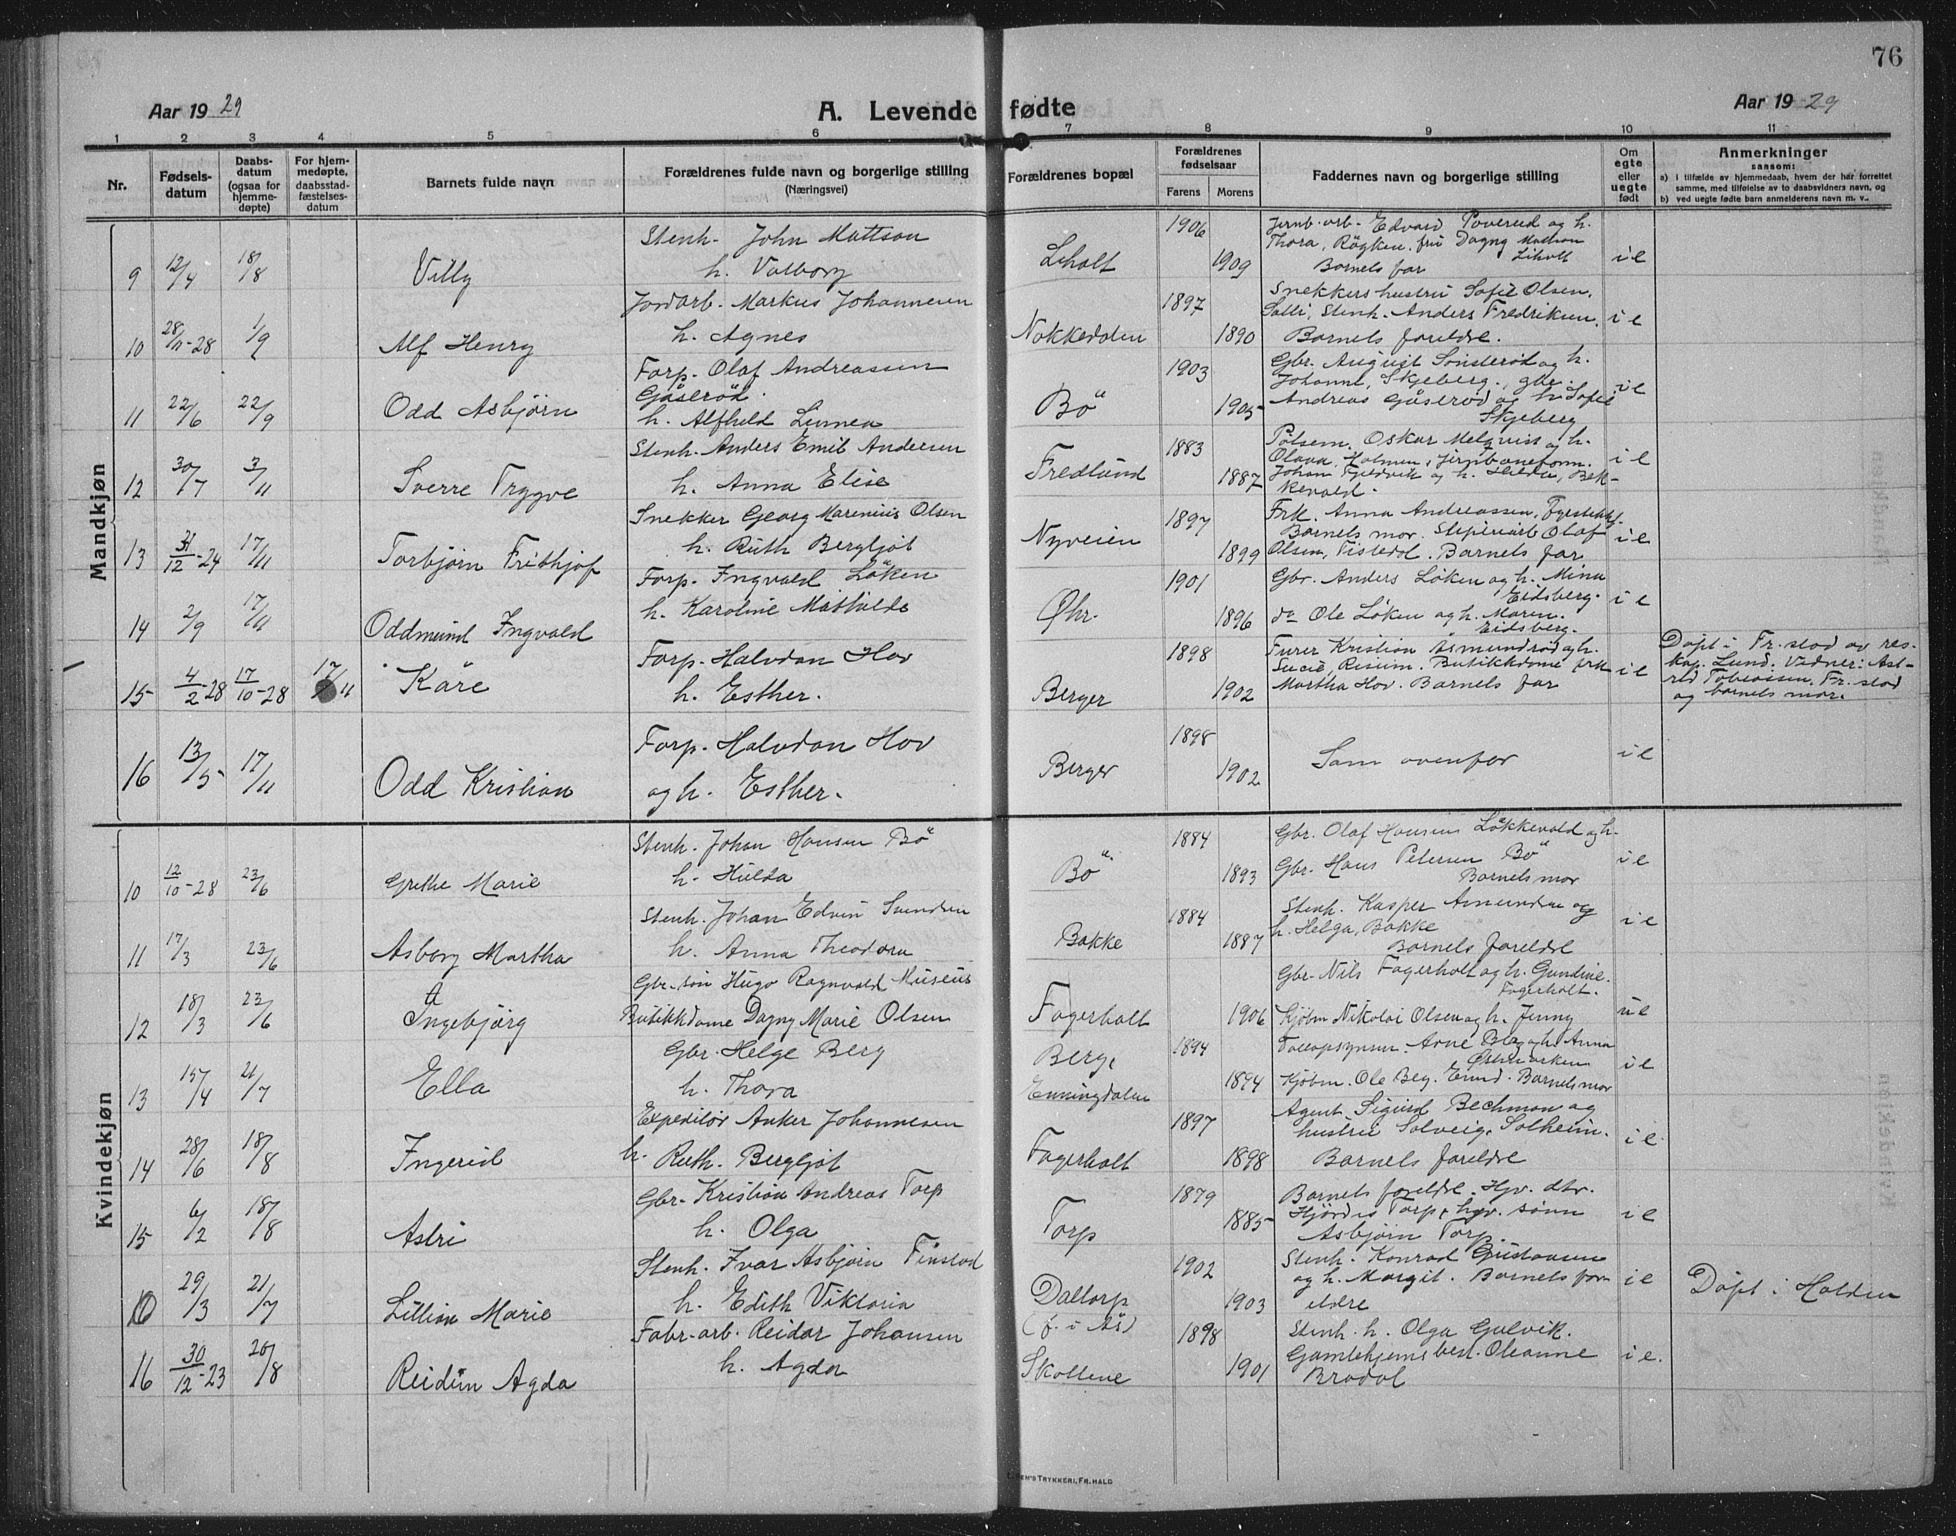 76
Aar 1929
A. Levende fødte
Aar 1929
1 2 3 4 5 6 7 8 9 10 11
Nr.
Fødsels-
datum
Daabs-
datum
(ogsaa for
hjemme-
døpte)
For hjem-
medøpte,
daabsstad-
fæstelses-
datum
Barnets fulde navn
Forældrenes fulde navn og borgerlige stilling
(Næringsvei)
Forældrenes bopæl
Forældrenes
fødselsaar
Farens Morens
Faddernes navn og borgerlige stilling
Om
egte
eller
uegte
født
Anmerkninger
sansom:
a) i tilfælde av hjemmedaab, hvem der har forrettet
samme, med tilføielse av to daabsvidners navn, og
b) ved uegte fødte barn anmelderens navn m. v..
Mandkjøn
9 12/4 18/8 Villy
Stenh. John Mattson
h. Valborg
Liholt
1906
1909
Jernb.arb. Edvard Poverud og h.
Thora, Røgken. fru Dagny Mattson
Liholt
Barnets far
i e
10 28/11-28 1/9 Alf Henry
Jordarb. Markus Johannesen
h. Agnes
Nokkedalen
1897
1890
Snekkers hustru Sofie Olsen,
Solli, Stenh. Anders Fredriksen.
Barnets foreldre.
i e
11 22/6 22/9 Odd Asbjørn
Forp. Olaf Andreassen
Gåserød.
h. Alfhild Linnea
Bö
1903
1905
Gbr. August Sønsterød og h.
Johanne, Skjeberg., gbr.
Andreas Gåserød og h. Sofie
Skjeberg
i e
12 30/7 3/11 Sverre Trygve
Stenh. Anders Emil Andersen
h. Anna Elise
Fredlund
1883
1887
Pølsem. Oskar Melqvist og h.
Olava, Holmen, jernbaneform.
Johan Tjeldvik og h. Hilda, Bek-
kevold.
i e
13 31/12-24 17/11 Torbjørn Frithjof
Snekker Georg Marenius Olsen
h. Ruth Bergljot
Nyveien
1897
1899
Frk. Anna Andreassen,
Barnets mor. Sliperiarb Olaf
Olsen, Tistedal. Barnets far
i e
14 2/9 17/11 Oddmund Ingvald
Forp. Ingvald Löken
h. Karoline Mathilde
Øhr.
1901
1896
Gbr. Anders Løken og h. Mina
Eidsberg.
do Ole Løken og h. Maren.
Eidsberg.
i e
15 4/2-28 17/10-28 17/11 Kåre
Forp. Halvdan Hov
h. Esther.
Berger
1898
1902
Furer Kristian Åsmundrød og h.
Lucie, Risum. Butikkdame frk
Martha Hov. Barnets far
i e
Døpt i Fr.stad av res-
kap. Lund. Vidner: Ast-
rid Tobiassen, Fr.stad
og barnets mor.
16 13/5 17/11 Odd Kristian
Forp. Halvdan Hov
og h. Esther.
Berger
1898
1902
Som ovenfor
i e
Kvindekjøn
10 12/10-28 23/6 Grethe Marie
Stenh. Johan Hansen Bö
h. Hulda
Bö
1884
1893
Gbr. Olaf Hansen Løkkevold og h.
Gbr. Hans Petersen Bö
Barnets mor
i e
11 17/3 23/6 Asborg Martha
Stenh. Johan Edvin Svendsen
h. Anna Theodora
Bakke
1884
1887
Stenh. Kasper Amundsen og
h. Helga, Bakke
Barnets foreldre
i e
12 18/3 23/6 Ingebjørg
Gbr.-søn Hugo Ragnvald Museus
Butikkdame Dagny Marie Olsen
Fagerholt
1906
Gbr. Nils Fagerholt og h. Gundine.
Fagerholt.
Kjøbm Nikolai Olsen og h. Jenny
u e
13 15/4 21/7 Ella
Gbr. Helge Berg
h. Thora
Berg,
Enningdalen
1894
1894
Tollopsynsm. Arne Berg og h. Anna
Østmarken
Kjøbm. Ole Berg. Barnets mor
i e
14 28/6 18/8 Ingerid
Expeditør Anker Johannesen
h. Ruth. Bergljot
Fagerholt
1897
1898
Agent Sigurd Bechman og
hustru Solveig, Solheim.
Barnets foreldre
i e.
15 6/2 18/8 Astri
Gbr. Kristian Andreas Torp
h. Olga
Torp
1879
1885
Barnets foreldre. Hjv. dtr.
Hjördis Torp, hjv. sønn
Asbjørn Torp.
i e
16 29/3 21/7 Lillian Marie
Stenh. Ivar Asbjørn Finstad
h. Edith Viktoria
Daltorp
(f. i Ås)
1902
1903
Stenh. Konrad Gustavsen
og h. Margit. Barnets for-
eldre
i e
Døpt i Halden
16 30/12-23 20/8 Reidun Agda
Fabr-arb. Reidar Johansen
h. Agda
Skollene
1898
1901
Stenh. h. Olga Gulvik.
Gamlehjemsbest. Oleanne
Bradal
i e.
TRYKKERI, FR.HALD